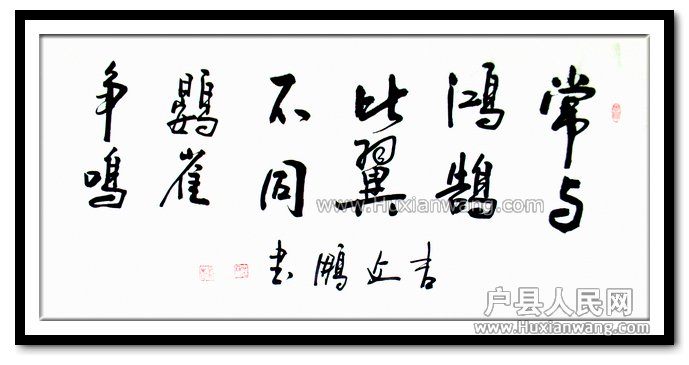 常与
鸿鹄
比翼
不同
鷃雀
争鸣
吉 鹏书
www.Huxianwang.com
户县人民网
www.Huxianwang.com